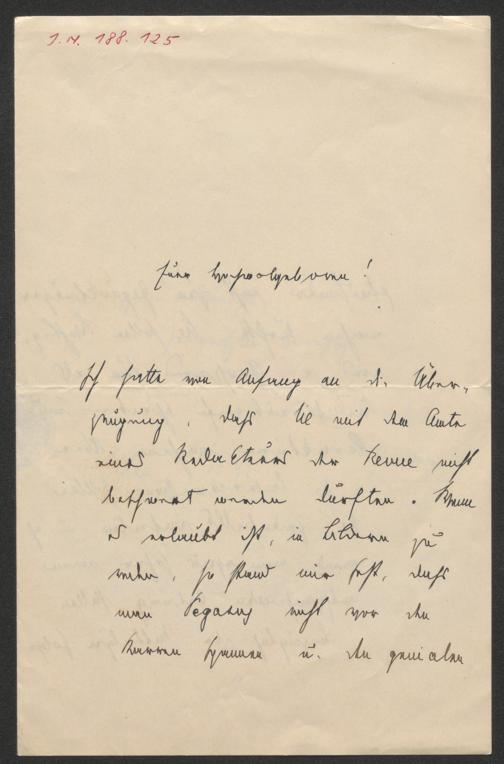 I.N. 188.125
Euer Hochwolgeboren!
Ich hatte von Anfang an die Über-
zeugung, daß Sie mit dem Amte
eines Redacteurs der Revue nicht
betraut werden dürften. Wenn
es erlaubt ist, in Bildern zu
reden, so stand mir fest, daß
man Pegasus nicht vor den
Karren spannen u. den genialen